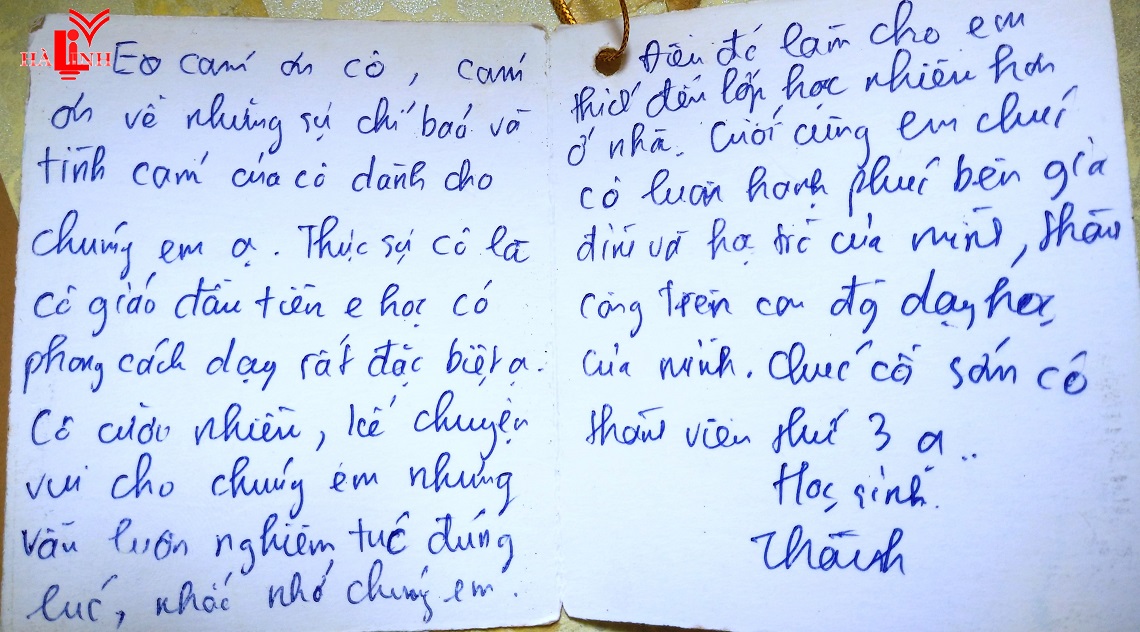 HÀ LINH
Em cảm ơn cô, cảm
ơn về những sự chỉ bảo và
tình cảm của cô dành cho
chúng em ạ. Thực sự cô là
cô giáo đầu tiên e học có
phong cách dạy rất đặc biệt ạ.
Cô cười nhiều, kể chuyện
vui cho chúng em nhưng
vẫn luôn nghiêm túc đúng
lúc, nhắc nhở chúng em.
Điều đó làm cho em
thích đến lớp học nhiều hơn
ở nhà. Cuối cùng em chúc
cô luôn hạnh phúc bên gia
đình và học trò của mình, thành
công trên con đg dạy học
của mình. Chúc cô sớm có
thành viên thứ 3 ạ..
Học sinh
Thành